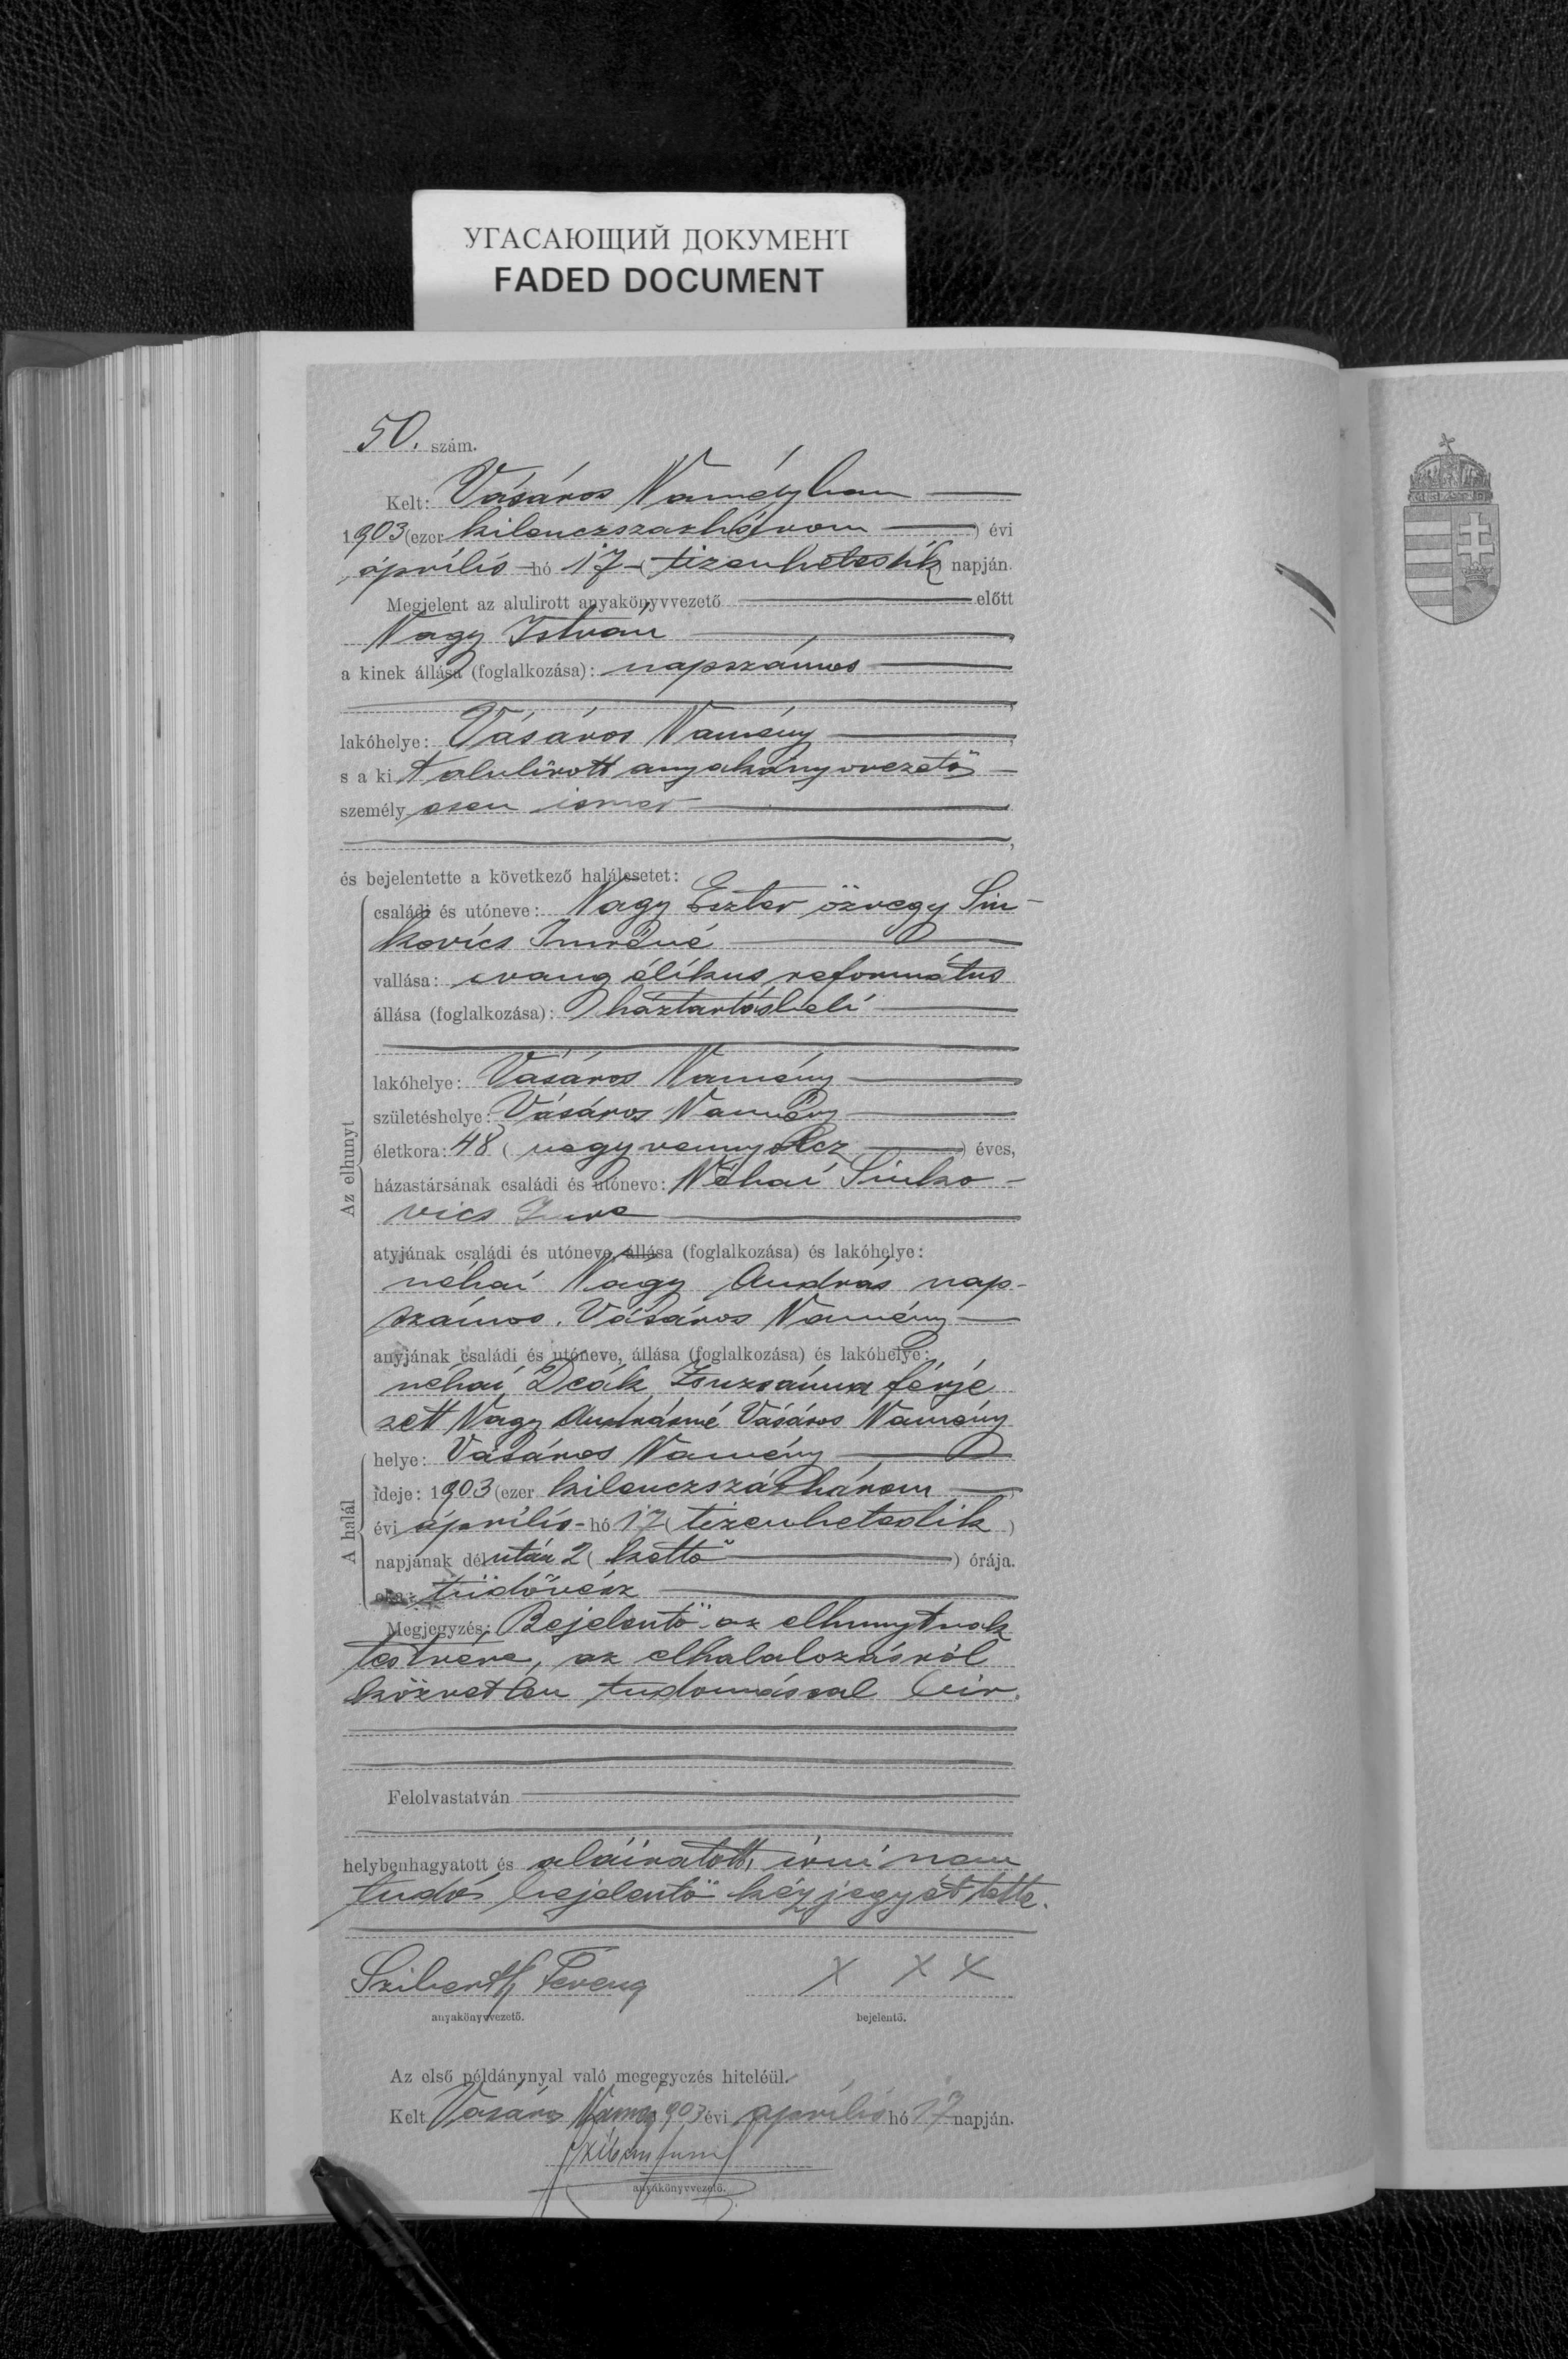 УГАСАЮЩИЙ ДОКУМЕНТ
FADED DOCUMENT
50. szám.
Kelt: Vásáros Naményban
1903 (ezer kilenczszázhárom ) évi
április hó 17 ( tizenhetedik ) napján.
Megjelent az alulirott anyakönyvvezető előtt
Nagy István
a kinek állása (foglalkozása): napszámos
lakóhelye: Vásáros Namény
s a ki t alulírott anyakönyvvezető
személyesen ismer
és bejelentette a következő halálesetet:
Az elhunyt
családi és utóneve: Nagy Eszter özvegy Sin-
kovics Imréné
vallása: evangélikus református
állása (foglalkozása): háztartásbeli
lakóhelye: Vásáros Namény
születéshelye: Vásáros Namény
életkora: 48 ( negyvennyolcz ) éves,
házastársának családi és utóneve: Néhai Sinko-
vics Imre
atyjának családi és utóneve, állása (foglalkozása) és lakóhelye:
néhai Nagy András nap-
számos. Vásáros Namény
anyjának családi és utóneve, állása (foglalkozása) és lakóhelye:
néhai Deák Zsuzsánna férje
zett Nagy Andrásné Vásáros Namény
A halál
helye: Vásáros Namény
ideje: 1903 (ezer kilenczszázhárom )
évi április hó 17 ( tizenhetedik )
napjának délután 2 ( kettő ) órája.
oka: tüdővész
Megjegyzés: Bejelentő az elhunytnak
testvére, az elhalálozásról
közvetlen tudomással bír.
Felolvastatván
helybenhagyatott és aláíratott, írni nem
tudó bejelentő kézjegyét tette.
Sziberth Ferencz X X X
anyakönyvvezető. bejelentő.
Az első példánynyal való megegyezés hiteléül.
Kelt Vásáros Namény 903 évi április hó 17 napján.
anyakönyvvezető.